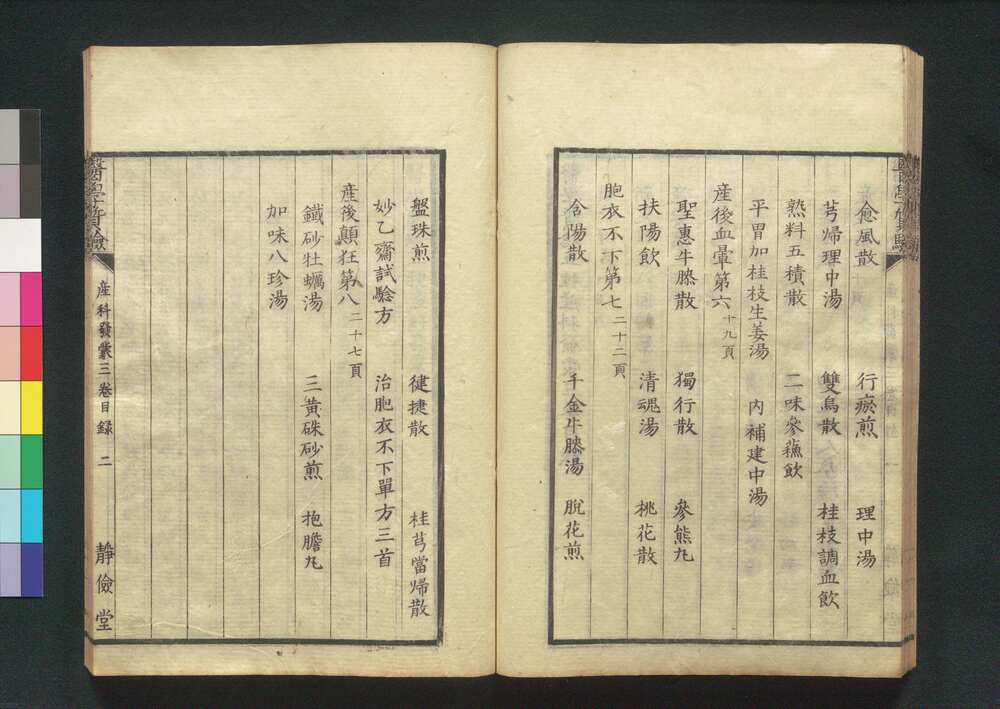 愈風散 行瘀煎 理中湯
芎帰理中湯 雙烏散 桂枝調血飲
熟料五積散 二味參蘓飲
平胃加桂枝生姜湯 内補建中湯
産後血暈第六 十九頁
聖惠牛膝散 獨行散 參熊丸
扶陽飲 清魂湯 桃花散
胞衣不下第七 二十二頁
含陽散 千金牛膝湯 脫花煎
盤珠煎 健捷散 桂芎當帰散
妙乙齋試驗方 治胞衣不下單方三首
産後顛狂第八 二十七頁
鐵砂牡蠣湯 三黄硃砂煎 抱膽丸
加味八珍湯
醫學質驗 産科發蒙三巻目録 二 靜儉堂